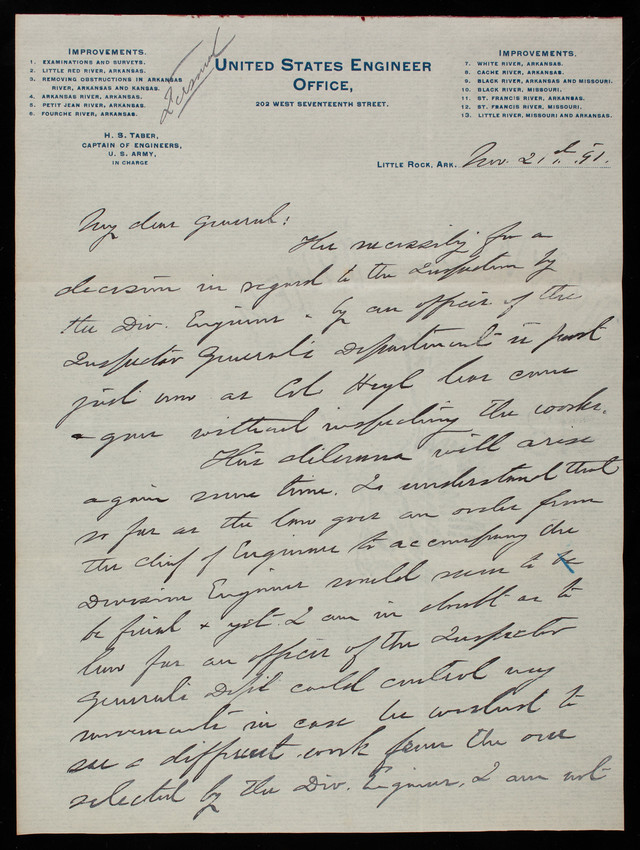 IMPROVEMENTS.
1. EXAMINATIONS AND SURVEYS.
2. LITTLE RED RIVER, ARKANSAS.
3. REMOVING OBSTRUCTIONS IN ARKANSAS
RIVER, ARKANSAS AND KANSAS.
4. ARKANSAS RIVER, ARKANSAS.
5. PETIT JEAN RIVER, ARKANSAS.
6. FOURCHE RIVER, ARKANSAS.
H. S. TABER,
CAPTAIN OF ENGINEERS,
U. S. ARMY,
IN CHARGE
Personal
UNITED STATES ENGINEER
OFFICE,
202 WEST SEVENTEENTH STREET.
IMPROVEMENTS.
7. WHITE RIVER, ARKANSAS.
8. CACHE RIVER, ARKANSAS.
9. BLACK RIVER, ARKANSAS AND MISSOURI.
10. BLACK RIVER, MISSOURI.
11. ST. FRANCIS RIVER, ARKANSAS.
12. ST. FRANCIS RIVER, MISSOURI.
13. LITTLE RIVER, MISSOURI AND ARKANSAS.
LITTLE ROCK, ARK. Nov. 21st. 91.
My dear General:
The necessity for a
decision in regard to the Inspection by
the Div. Engineer & by an officer of the
Inspector General's Department is past
just now as Col Heyl has come
& gone without inspecting the works.
This dilemma will arise
again some time. I understand that
so far as the law goes an order from
the Chief of Engineers to accompany the
Division Engineer would seem to be
be final & yet I am in doubt as to
how far an officer of the Inspector
General's Dept could control my
movements in case he wished to
see a different work from the one
selected by the Div. Engineer, I am not